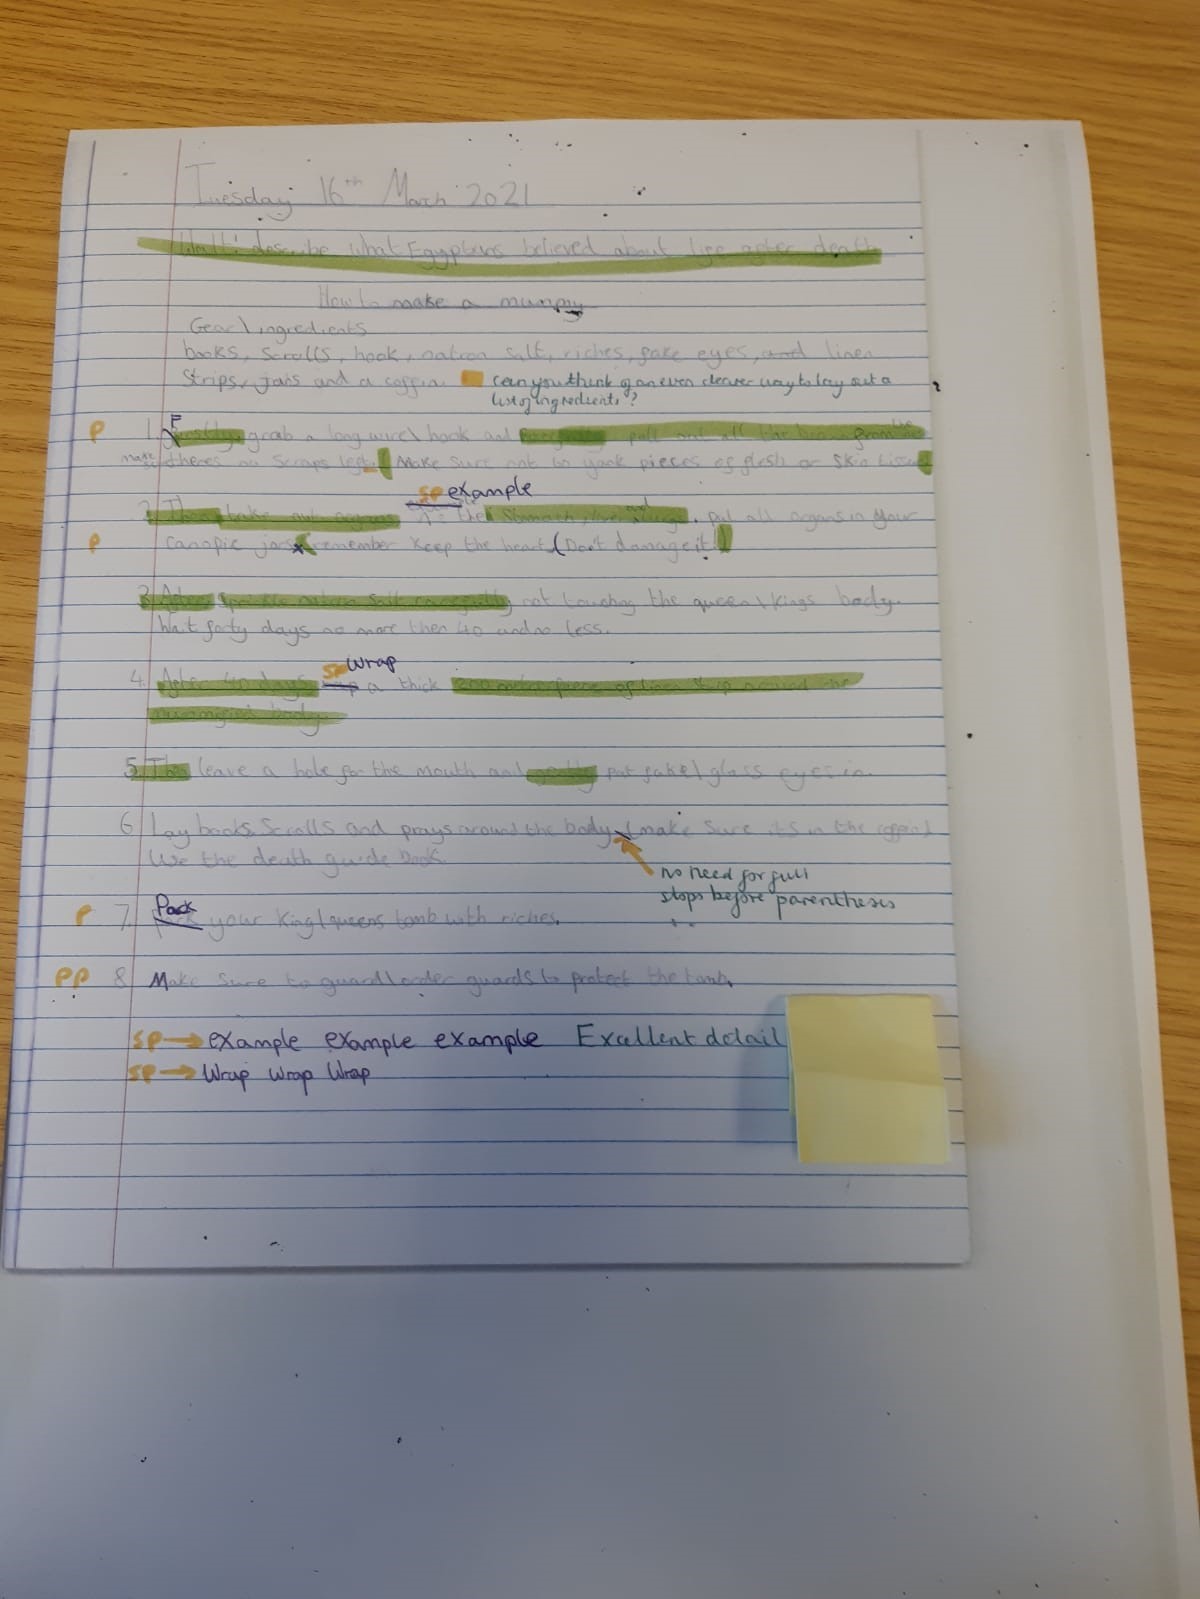 Tuesday 16th March 2021
describe what Egyptians believed about life after death
How to make a mummy
Gear\ingredients
books, scrolls, hook, natron salt, riches, fake eyes, and linen
Strips, jars and a coffin. can you think of an even clearer way to lay out a
list of ingredients?
P 1. F grab a long wire\ hook and pull out all the brain from the
make sure theres no scraps left. (Make sure not to yank pieces of flesh or skin tissue)
sp example
2. Then take out organs the stomach, and lungs. put all organs in your
P canopic jars (remember keep the heart (Don't damage it!)
3. After sprinkle natron salt carefully not touching the queen\kings body.
Wait forty days no more then 40 and no less.
sp wrap
4. After 40 days a thick 200 meter piece of linen strip around the
mummified body.
5. Then leave a hole for the mouth and gently put fake\glass eyes in.
6 Lay books, scrolls and prays around the body. (make sure its in the coffin)
Use the death guide book.
no need for full
stops before parentheses
P 7. Pack your king\queens tomb with riches.
PP 8 Make sure to guard\order guards to protect the tomb.
sp → example example example Excellent detail
sp → Wrap wrap Wrap